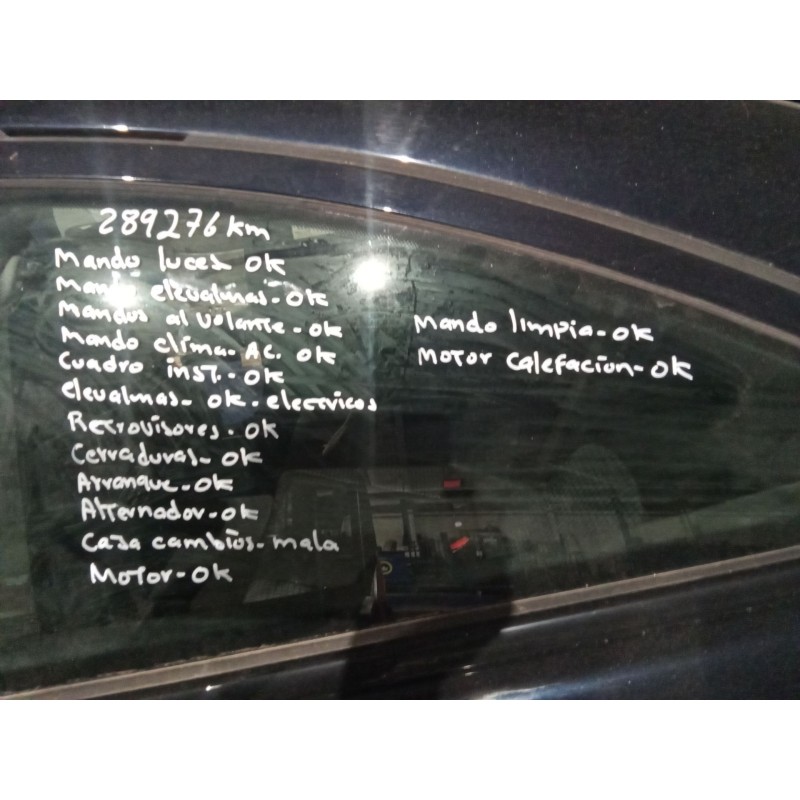 289276 km
Mando luces OK
Mando elevalunas - OK
Mandos al volante - OK
Mando clima - AC. OK
Cuadro inst. - OK
elevalunas - OK - electricos
Retrovisores - OK
Cerraduras - OK
Arranque - OK
Alternador - OK
Caja cambios - mala
Motor - OK
Mando limpia - OK
Motor calefacion - OK